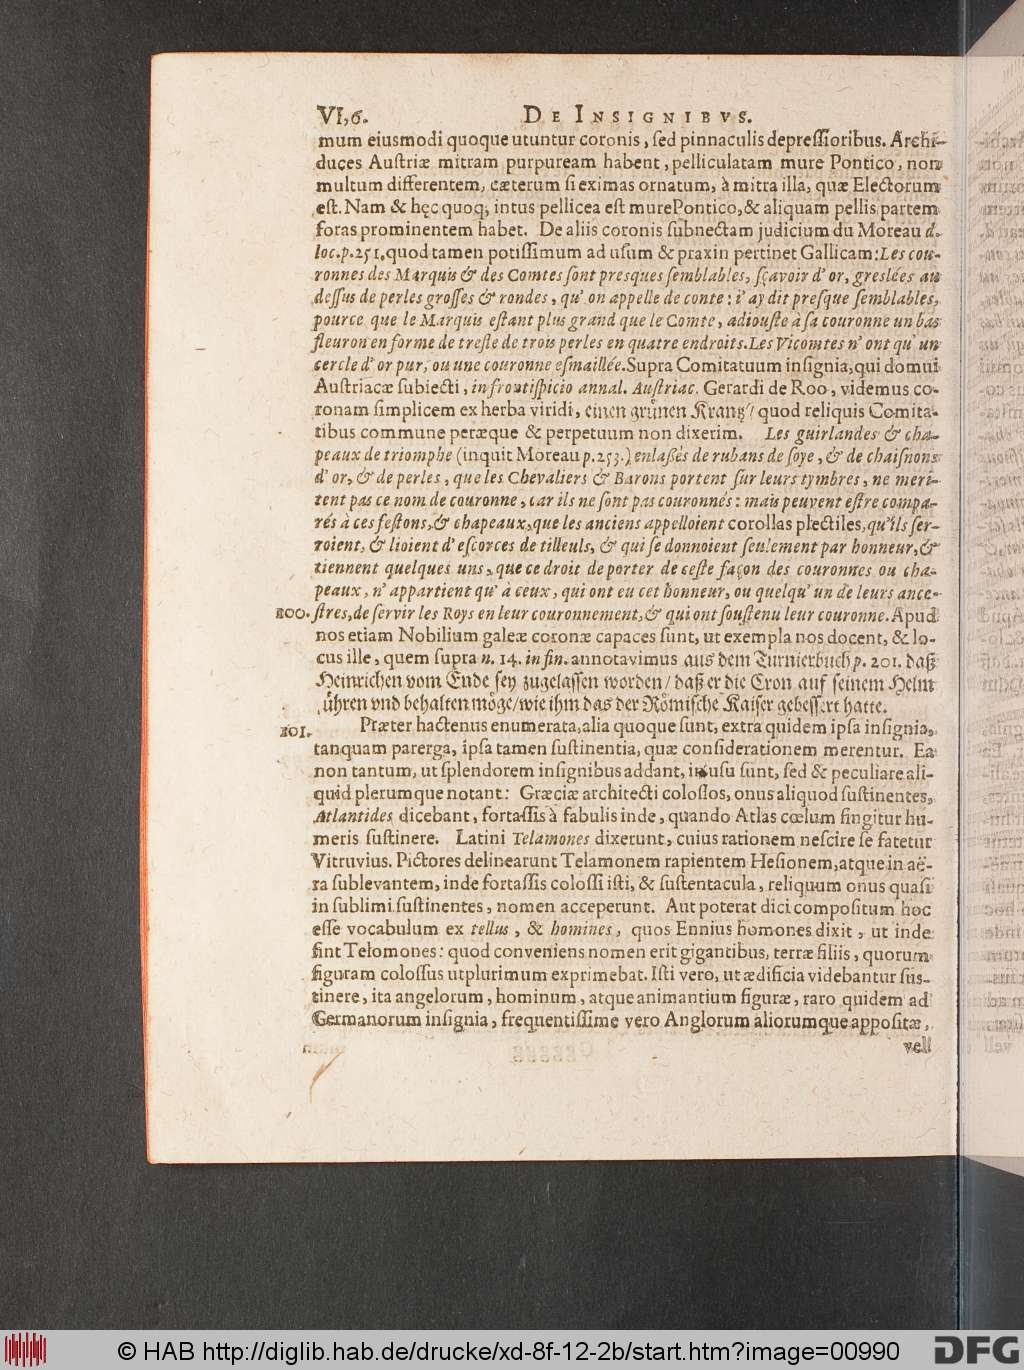 VI,6. DE INSIGNIBVS.
mum eiusmodi quoque utuntur coronis, ſed pinnaculis depreſſioribus. Archi-
duces Auſtriæ mitram purpuream habent, pelliculatam mure Pontico, non
multum differentem, cæterum ſi eximas ornatum, à mitra illa, quæ Electorum
eſt. Nam & hęc quoq; intus pellicea eſt mure Pontico, & aliquam pellis partem
foras prominentem habet. De aliis coronis ſubnectam judicium du Moreau d.
loc. p. 251. quod tamen potiſſimum ad uſum & praxin pertinet Gallicam: Les cou-
ronnes des Marquis & des Comtes ſont presques ſemblables, ſçavoir d'or, greslées au
deſſus de perles groſſes & rondes, qu'on appelle de conte: i'ay dit preſque ſemblables,
pource que le Marquis eſtant plus grand que le Comte, adiouſte à ſa couronne un bas
fleuron en forme de treſle de trois perles en quatre endroits. Les Vicomtes n'ont qu'un
cercle d'or pur, ou une couronne eſmaillée. Supra Comitatuum inſignia, qui domui
Auſtriacæ ſubiecti, in frontiſpicio annal. Auſtriac. Gerardi de Roo, videmus co-
ronam ſimplicem ex herba viridi, einen grünen Krantz/ quod reliquis Comita-
tibus commune peræque & perpetuum non dixerim. Les guirlandes & cha-
peaux de triomphe (inquit Moreau p. 253.) enlaßés de rubans de ſoye, & de chaiſnons
d'or, & de perles, que les Chevaliers & Barons portent ſur leurs tymbres, ne meri-
tent pas ce nom de couronne, car ils ne ſont pas couronnés: mais peuvent eſtre compa-
rés à ces feſtons, & chapeaux, que les anciens appelloient corollas plectiles, qu'ils ſer-
roient, & lioient d'eſcorces de tilleuls, & qui ſe donnoient ſeulement par honneur, &
tiennent quelques uns, que ce droit de porter de ceſte façon des couronnes ou cha-
peaux, n'appartient qu'à ceux, qui ont eu cet honneur, ou quelqu'un de leurs ance-
200. ſtres, de ſervir les Roys en leur couronnement, & qui ont ſouſtenu leur couronne. Apud
nos etiam Nobilium galeæ coronæ capaces ſunt, ut exempla nos docent, & lo-
cus ille, quem ſupra n. 14. in fin. annotavimus aus dem Turnierbuch p. 201. daß
Heinrichen vom Ende ſey zugelaſſen worden/ daß er die Cron auf ſeinem Helm
führen vnd behalten möge/ wie ihm das der Römiſche Kaiſer gebeſſert hatte.
201. Præter hactenus enumerata, alia quoque ſunt, extra quidem ipſa inſignia,
tanquam parerga, ipſa tamen ſuſtinentia, quæ conſiderationem merentur. Ea
non tantum, ut ſplendorem inſignibus addant, in uſu ſunt, ſed & peculiare ali-
quid plerumque notant: Græciæ architecti coloſſos, onus aliquod ſuſtinentes,
Atlantides dicebant, fortaſſis à fabulis inde, quando Atlas cœlum fingitur hu-
meris ſuſtinere. Latini Telamones dixerunt, cuius rationem neſcire ſe fatetur
Vitruvius. Pictores delinearunt Telamonem rapientem Heſionem, atque in aë-
ra ſublevantem, inde fortaſſis coloſſi iſti, & ſuſtentacula, reliquum onus quaſi
in ſublimi ſuſtinentes, nomen acceperunt. Aut poterat dici compoſitum hoc
eſſe vocabulum ex tellus, & homines, quos Ennius homones dixit, ut inde
ſint Telomones: quod conveniens nomen erit gigantibus, terræ filiis, quorum
figuram coloſſus utplurimum exprimebat. Iſti vero, ut ædificia videbantur ſuſ-
tinere, ita angelorum, hominum, atque animantium figuræ, raro quidem ad
Germanorum inſignia, frequentiſſime vero Anglorum aliorumque appoſitæ,
vell
© HAB http://diglib.hab.de/drucke/xd-8f-12-2b/start.htm?image=00990
DFG